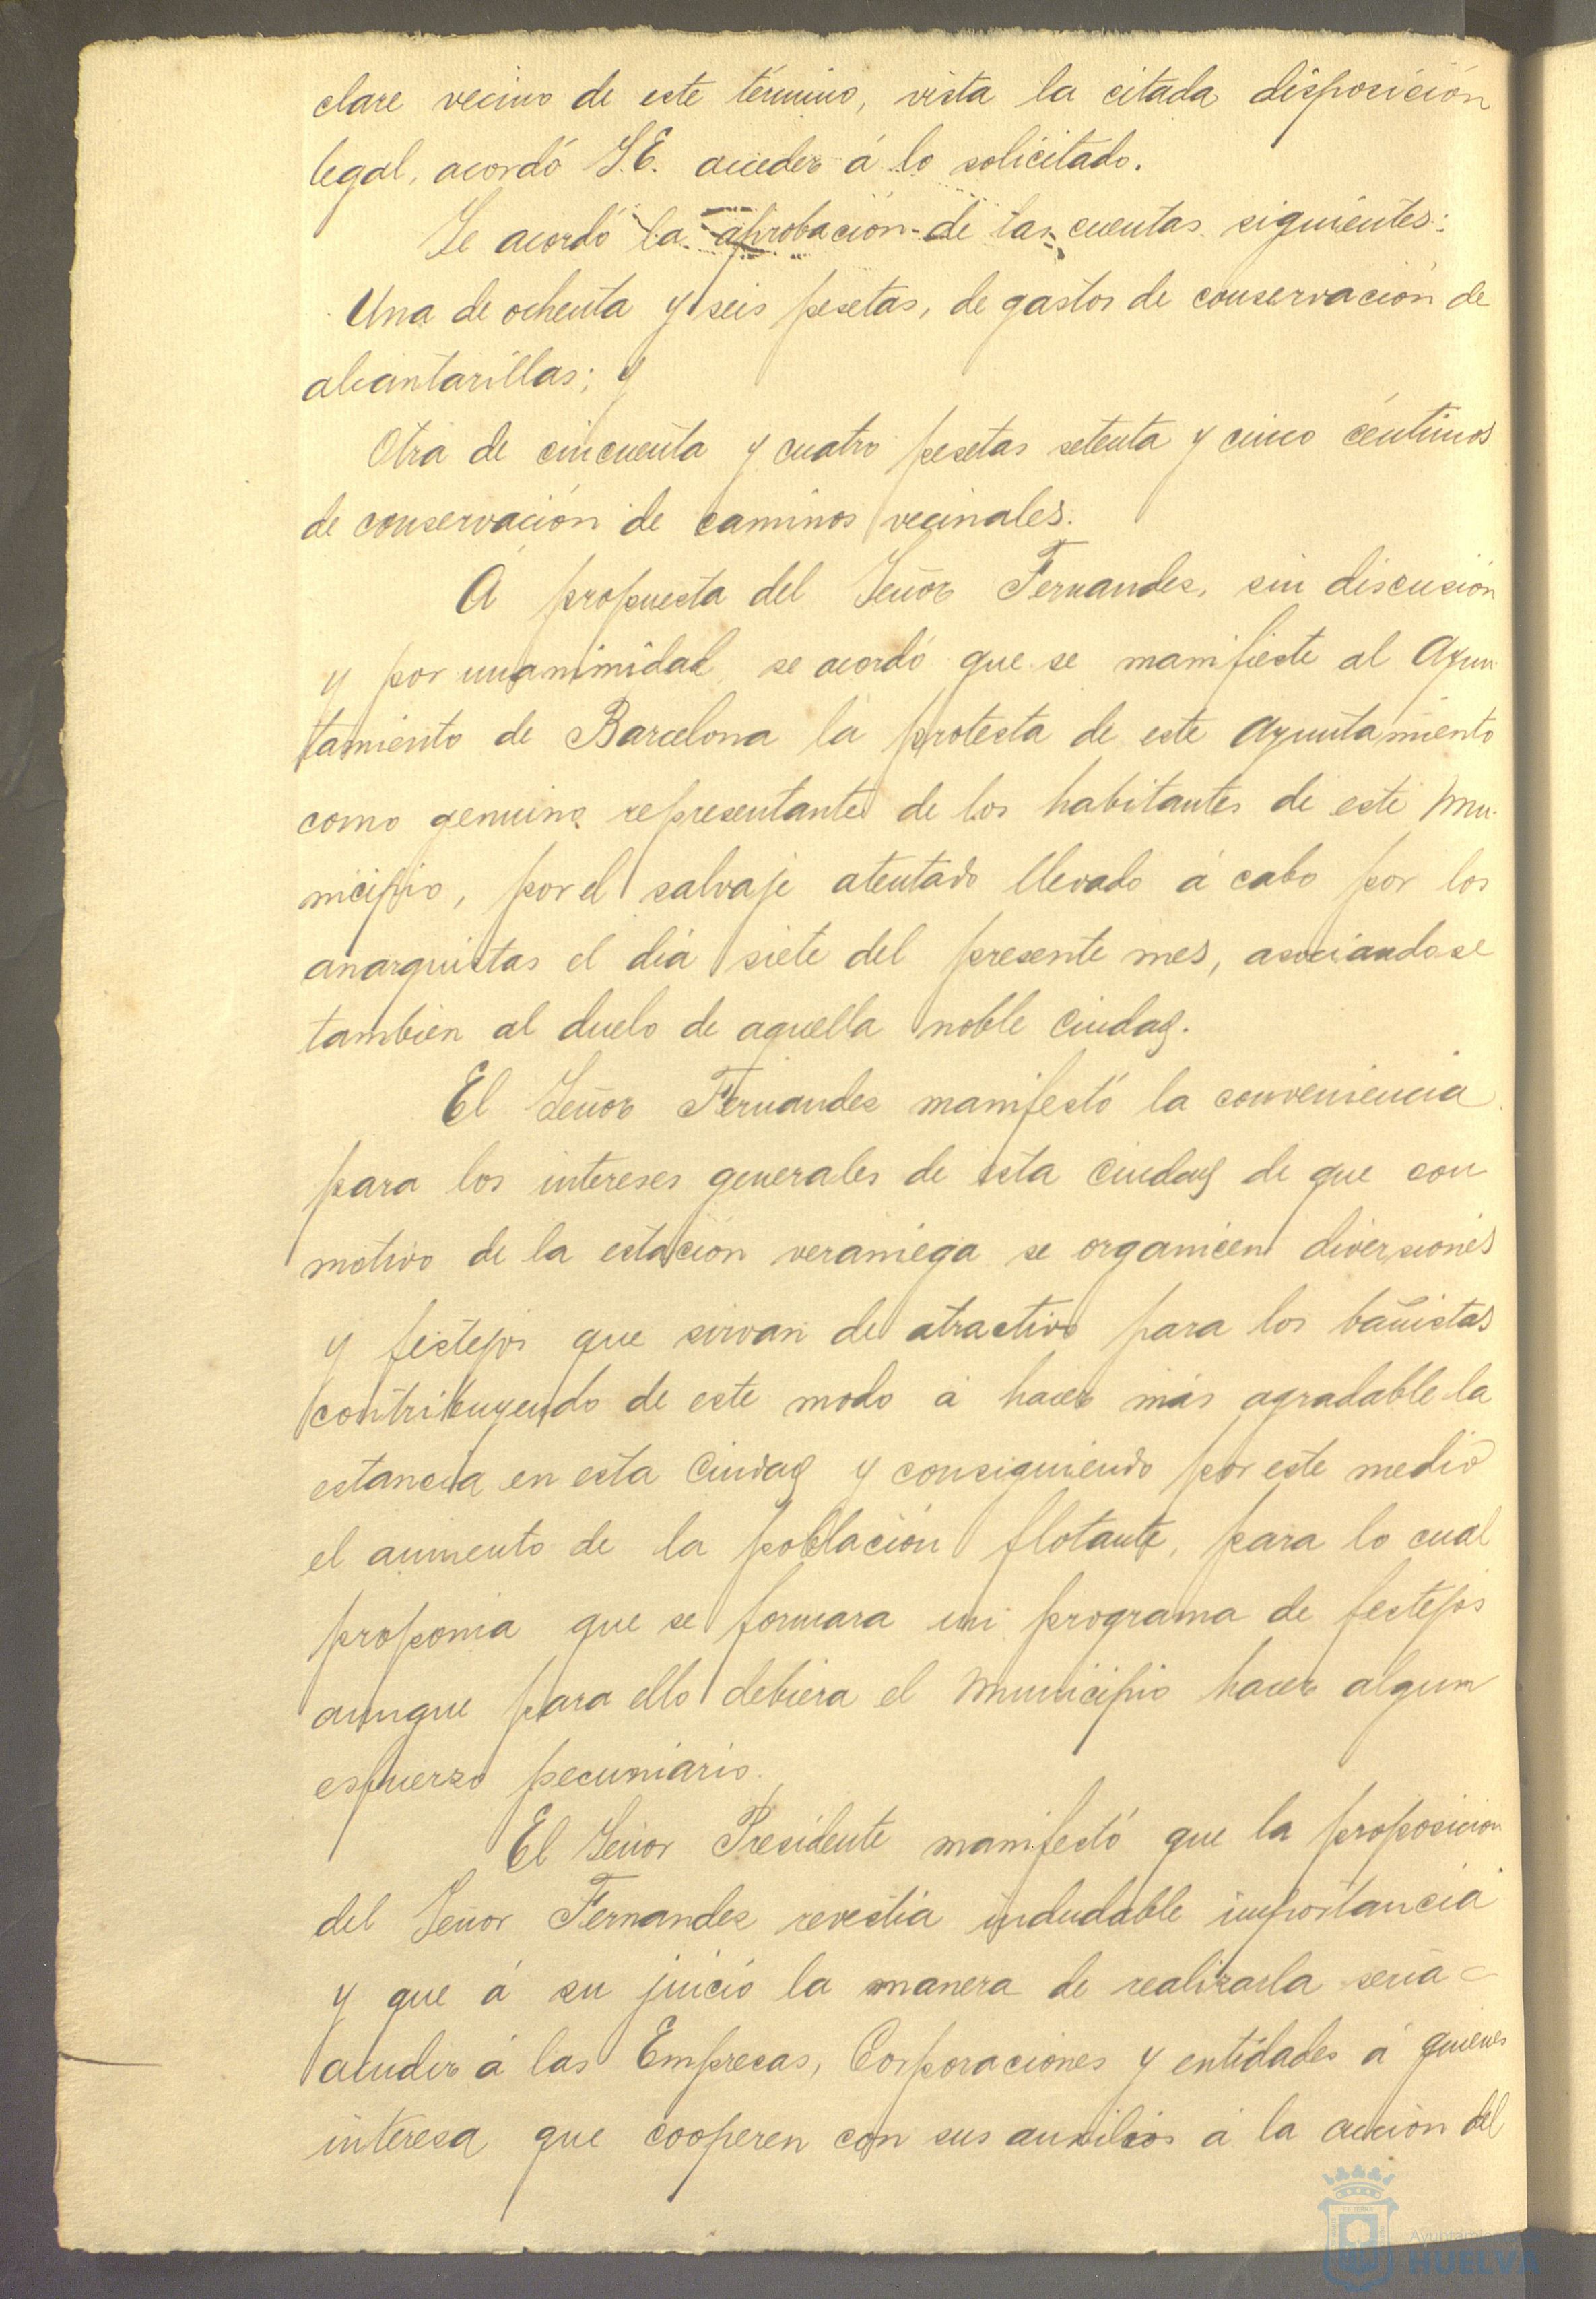 clare vecino de este término, vista la citada disposición
legal, acordó S.E. acceder á lo solicitado.
Se acordó la aprobación de las cuentas siguientes:
Una de ochenta y seis pesetas, de gastos de conservación de
alcantarillas; y
Otra de cincuenta y cuatro pesetas setenta y cinco céntimos
de conservación de caminos vecinales.
A propuesta del Señor Fernandez, sin discusión
y por unanimidad, se acordó que se manifieste al Ayun-
tamiento de Barcelona la protesta de este Ayuntamiento
como genuino representante de los habitantes de este Mu-
nicipio, por el salvaje atentado llevado á cabo por los
anarquistas el dia siete del presente mes, asociandose
tambien al duelo de aquella noble Ciudad.
El Señor Fernandez manifestó la conveniencia
para los intereses generales de esta Ciudad de que con
motivo de la estación veraniega se organicen diversiones
y festejos que sirvan de atractivo para los bañistas
contribuyendo de este modo á hacer más agradable la
estancia en esta Ciudad y consiguiendo por este medio
el aumento de la población flotante, para lo cual
proponia que se formara un programa de festejos
aunque para ello debiera el Municipio hacer algun
esfuerzo pecuniario.
El Señor Presidente manifestó que la proposicion
del Señor Fernandez revestia indudable importancia
y que á su juicio la manera de realizarla seria
acudir á las Empresas, Corporaciones y entidades á quienes
interesa que cooperen con sus auxilios á la acción del
Ayuntamiento
HUELVA